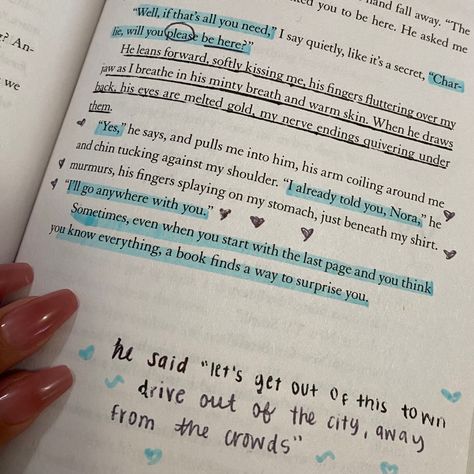 ked you to be here. He asked
hand fall away. "The
"Well, if that's all you need," I say quietly, like it's a secret, "Char-
lie, will you please be here?"
He leans forward, softly kissing me, his fingers fluttering over my
jaw as I breathe in his minty breath and warm skin. When he draws
back, his eyes are melted gold, my nerve endings quivering under
them.
"Yes," he says, and pulls me into him, his arm coiling around me
and chin tucking against my shoulder. "I already told you, Nora," he
murmurs, his fingers splaying on my stomach, just beneath my shirt.
"I'll go anywhere with you."
Sometimes, even when you start with the last page and you think
you know everything, a book finds a way to surprise you.
? An-
we
he said "let's get out of this town
drive out of the city, away
from the crowds"